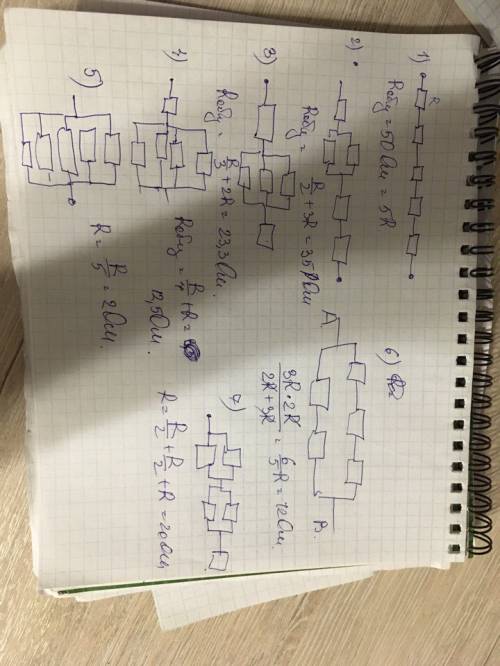 1)
R
Rобщ = 50 Ом = 5R
2)
Rобщ = R/2 + 3R = 35 Ом
3)
Rобщ = R/3 + 2R = 23,3 Ом.
4)
Rобщ = R/4 + R =
12,5 Ом.
5)
R = R/5 = 2 Ом.
6)
A
B
3R · 2R / 2R + 3R = 6/5 R = 12 Ом.
7)
R = R/2 + R/2 + R = 20 Ом